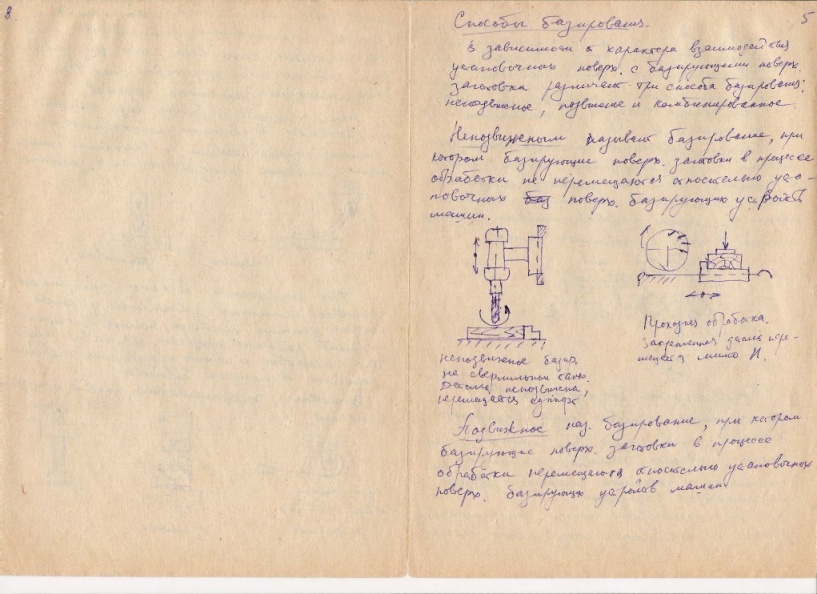 8.
5
Способы базирования.
В зависимости от характера взаимодействия
установочных поверх. с базирующими поверх.
заготовки различают три способа базирования:
неподвижное, подвижное и комбинированное.
Неподвижным называют базирование, при
котором базирующие поверх. заготовки в процессе
обработки не перемещаются относительно уста-
новочных баз поверх. базирующих устройств
машин.
неподвижное базир.
на сверлильном станке.
неподвижна,
перемещается
Проходная обработка.
закрепленная деталь пере-
мещается мимо И.
Подвижное наз. базирование, при котором
базирующие поверх. заготовки в процессе
обработки перемещаются относительно установочных
поверх. базирующих устройств машин